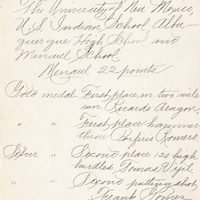 The University of New Mexico,
U.S. Indian School, Albu-
querque High School and
Menaul School.
Menaul 22 points
Gold medal. First place in two mile
run Ricardo Aragon,
" " First place hammer
throw Porfirio Romero.
Silver " Second place 120 high
hurdles Tomas Vigil.
" " Second putting shot,
Frank Gomez